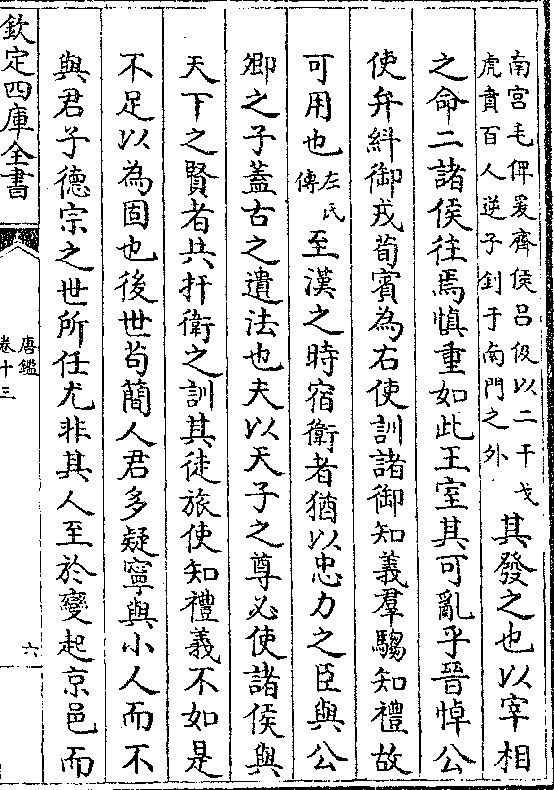 南宫毛俾爰齊侯吕伋以二干戈
虎賁百人逆子釗于南門之外
其發之也以宰相
之命二諸侯往焉慎重如此王室其可亂乎晉悼公
使弁糾御戎荀賓為右使訓諸御知義羣騶知禮故
可用也
左氏
傳
至漢之時宿衛者猶以忠力之臣與公
卿之子蓋古之遺法也夫以天子之尊必使諸侯與
天下之賢者共扞衛之訓其徒旅使知禮義不如是
不足以為固也後世苟簡人君多疑寧與小人而不
與君子德宗之世所任尤非其人至於變起京邑而
欽定四庫全書
唐鑑
卷十三
六